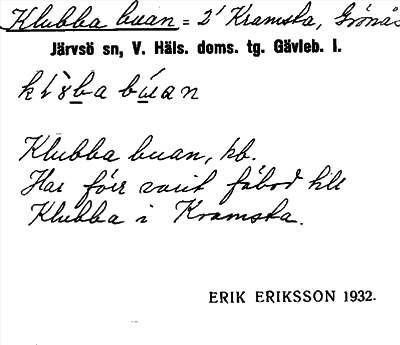 Klubba buan = 2' Kramsta, Grönås
Järvsö sn, V. Häls. doms. tg. Gävleb. l.
Klubba buan, hb.
Har förr varit fäbod till
Klubba i Kramsta.
ERIK ERIKSSON 1932.